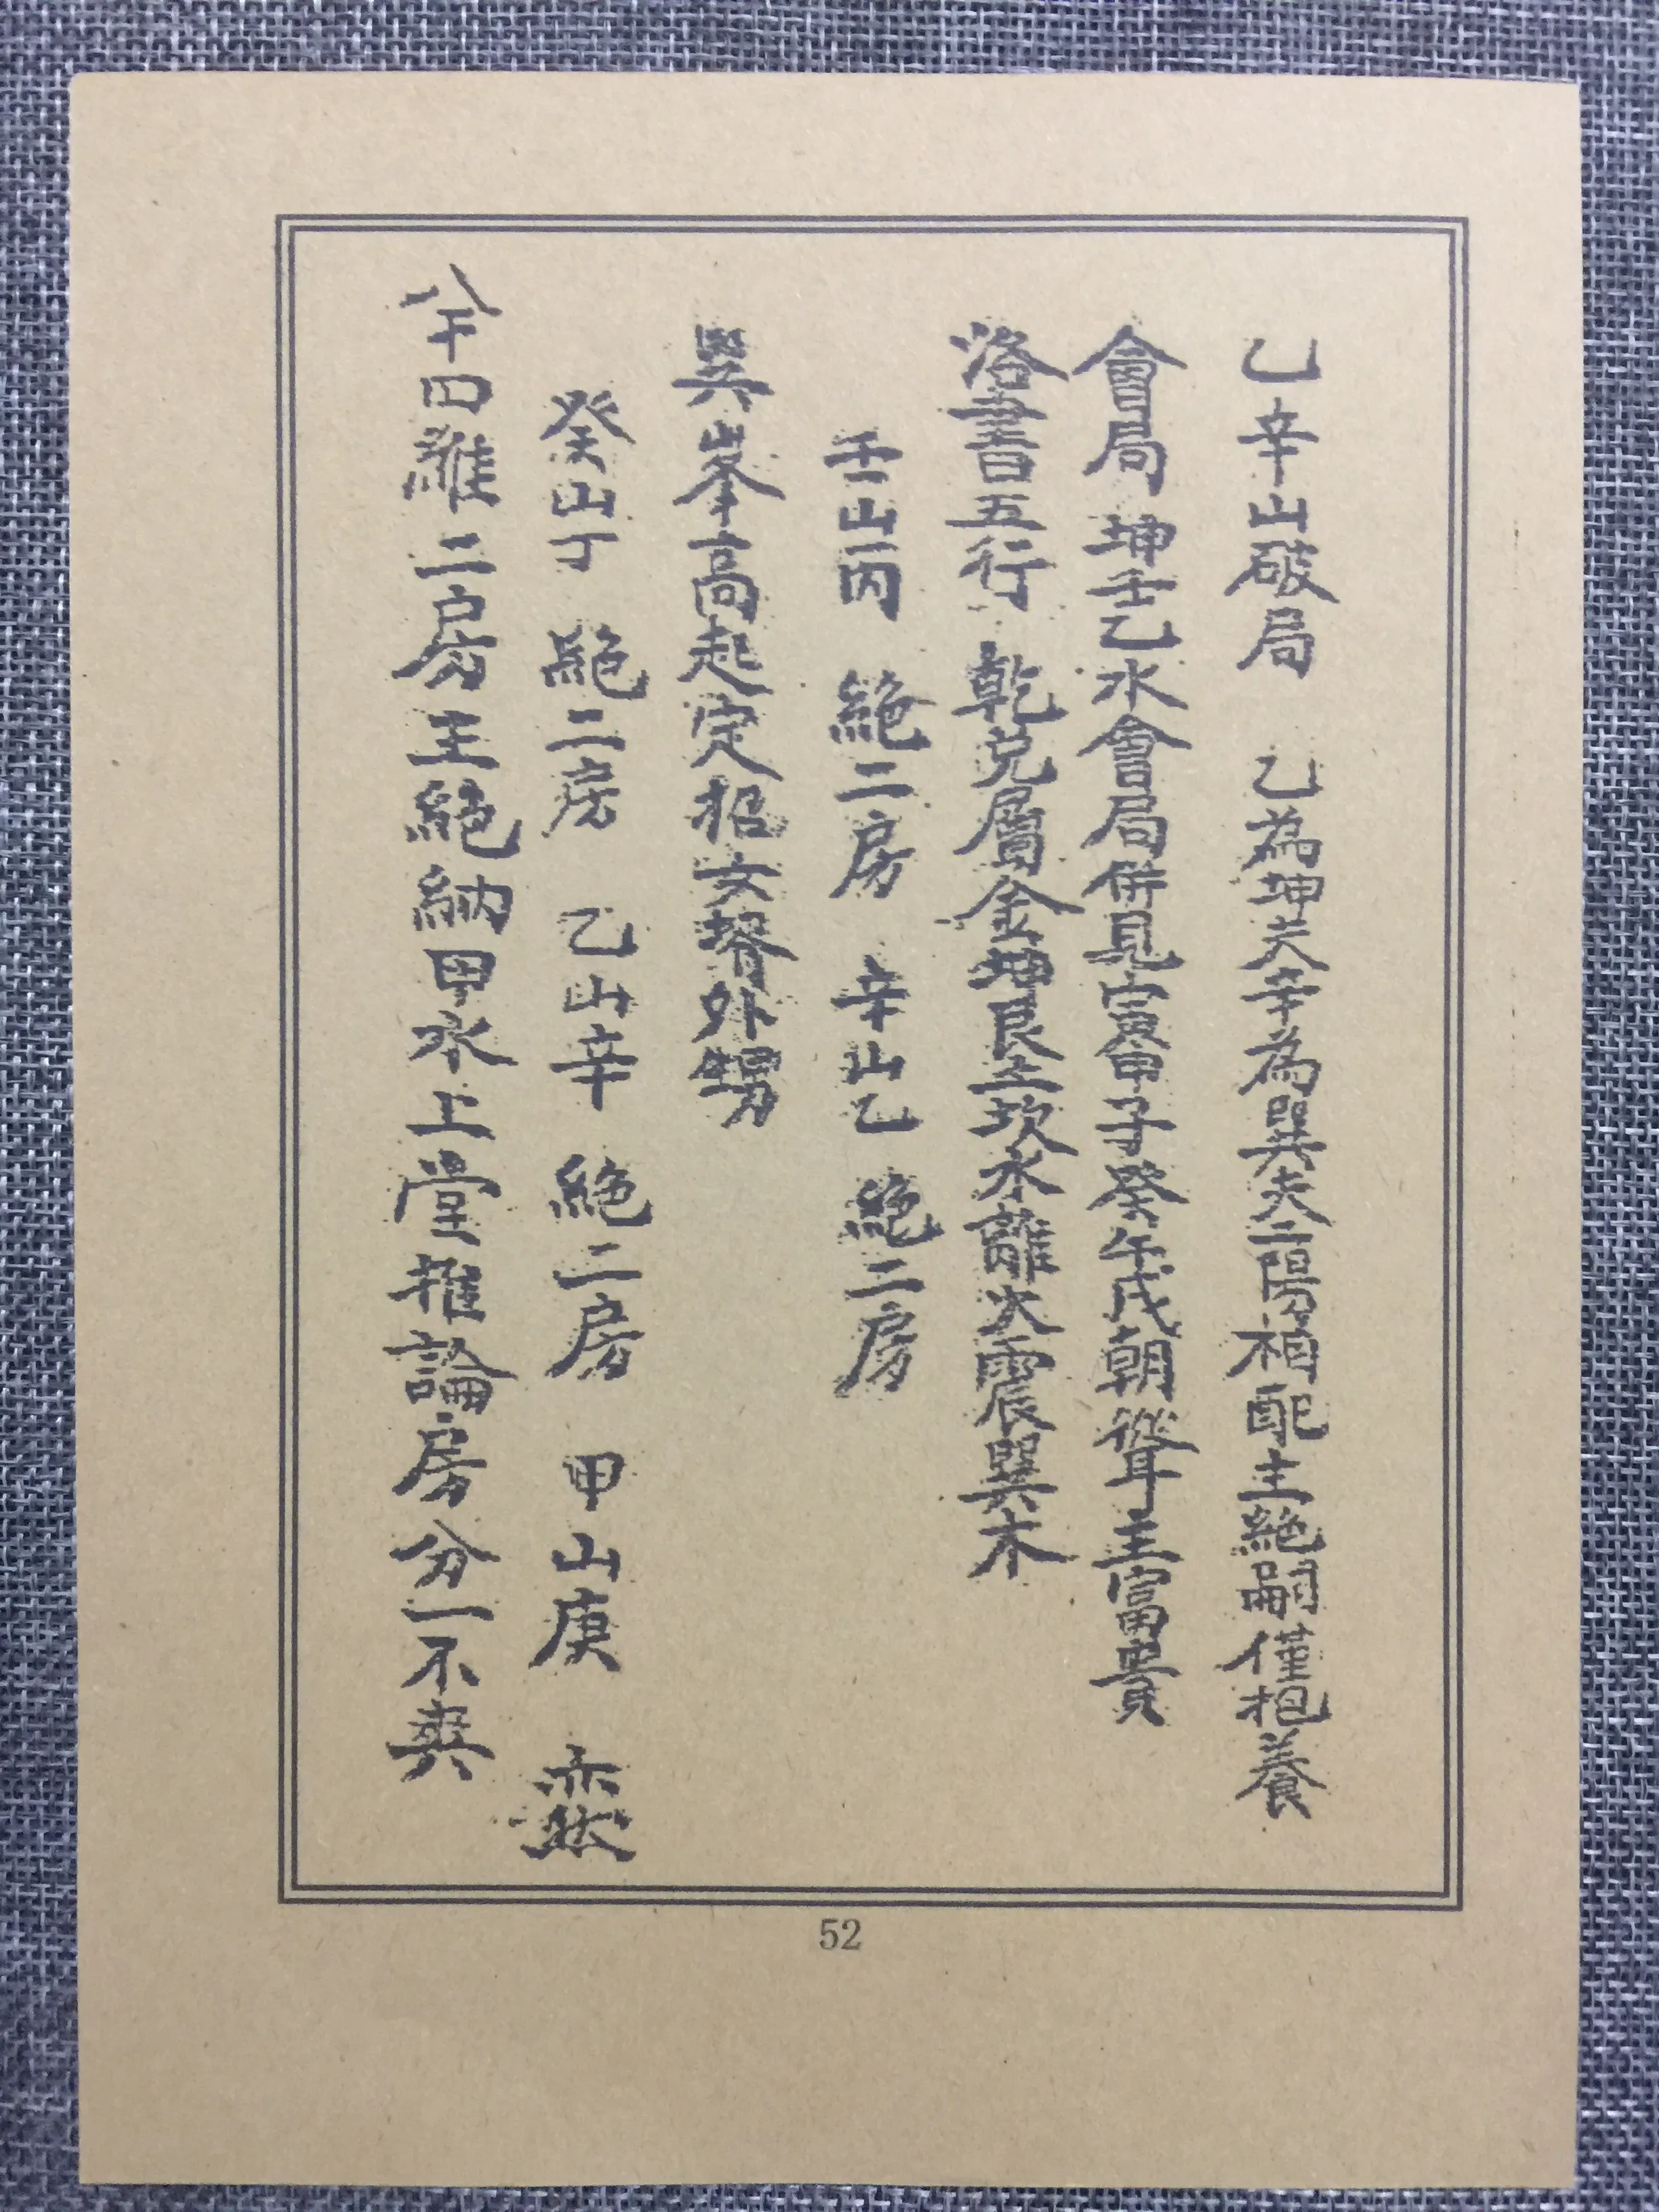 乙辛山破局 乙為坤夫辛為巽夫二陽相配主絕嗣僅抱養
會局 坤壬乙水會局併見寅甲子癸午戌朝聳主富貴
洛書五行 乾兌屬金坤艮土坎水離火震巽木
壬山丙 絕二房 辛山乙 絕二房
巽峯高起定招女婿外甥
癸山丁 絕二房 乙山辛 絕二房 甲山庚
羅二房主絕納甲水上堂推論房分一不爽
52